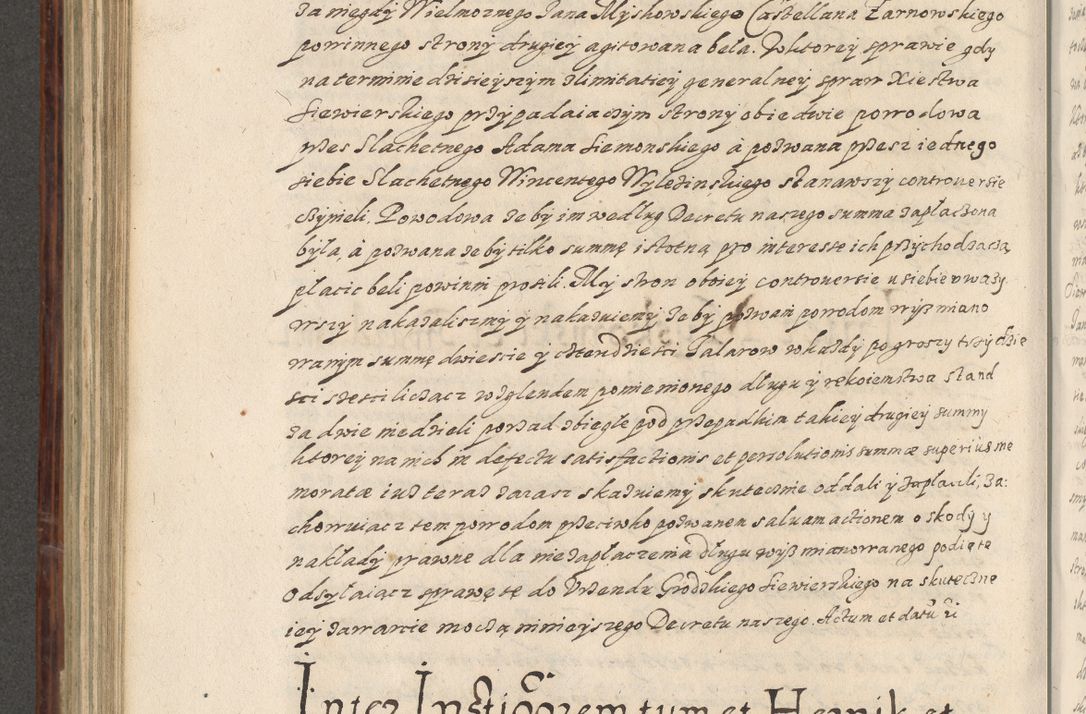 Za megdy Wielmoznego Jana Myskowskiego Castellana Żarnowskiego
powinnego strony drugiey agitowana beła. W ktorey sprawie gdy
na terminie dzisieyszym z limitatiey generalney spraw Xiestwa
Siewierskiego przypadaiaczym strony obiedwie powodowa
przes Slachetnego Adama Siemonskiego à pozwana przesz iednego
siebie Slachetnego Wincentego Wylezinskiego stanawszy controuersie
czynieli. Powodowa że by im według Decretu naszego summa zapłaczona
była, à pozwana że by tilko summę istotną pro interesse ich przychodzaczą
płacic beli powinni prosili. My stron oboiey controuersie u siebie uwazy
wszy nakazalismy y nakazuiemy że by pozwani powodom wyß miano
wanym summę dwiescie y czterdziesci Talarow w kazdy po groszy trzydzie
sci szesci liczacz wzglendem pomienionego długu y rękoiemstwa stand
za dwie niedzieli porząd zbiegłe pod przepadkim takiey drugiey summy
ktorey na nich in defectu satisfactionis et persolutionis summæ superius me
moratæ iuż teraz zarasz skazuiemy skutecznie oddali y zapłacili, Za:
chowuiacz tem powodom przeciwko pozwanem saluam actionem o skody y
nakłady prawne dla niezapłaczenia długu wyß mianowanego podięte
Odsyłaiącz sprawę tę do Vrzendu Grodzkiego Siewierskiego na skuteczne
iey zawarcie moczą ninieyszego Decretu naszego. Actum et datū ūi
Inter Instigorem tum et Hernik et